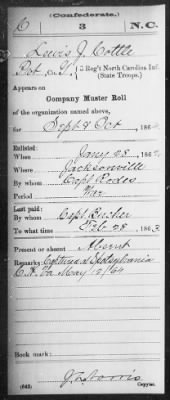 (Confederate.)
C 3 N.C.
Lewis J. Cottle
Pvt, Co. G, 3 Reg't North Carolina Inf.
(State Troops.)
Appears on
Company Muster Roll
of the organization named above,
for Sept & Oct, 186
Enlisted:
When Jany 28, 1862
Where Jacksonville
By whom Capt Rodes
Period War
Last paid:
By whom Capt
To what time Feb 28, 1863
Present or absent Absent
Remarks: Captured at Spotsylvania
C.H. Va May 12/64
Book mark:
(642) Copyist.